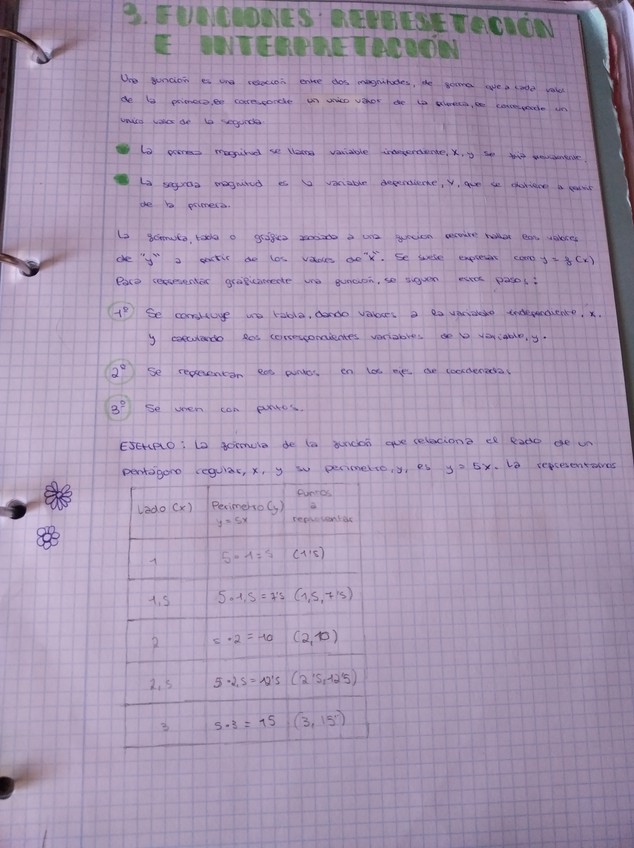 3. FUNCIONES: REPRESETACIÓN
E INTERPRETACIÓN
Una función es una relación entre dos magnitudes, de forma que a cada valor
de la primera, le corresponde un unico valor de la primera, le corresponde un
unico valor de la segunda.
La primera magnitud se llama variable independiente, x, y se fija previamente.
La segunda magnitud es la variable dependiente, y, que se obtiene a partir
de la primera.
La fórmula, tabla o gráfica asociada a una función permite hallar los valores
de "y" a partir de los valores de "x". Se suele expresar com y = f (x)
Para representar gráficamente una función, se siguen estos pasos:
1º Se construye una tabla, dando valores a la variable independiente, x,
y calculando los correspondientes variables de la variable, y.
2º Se representan los puntos en los ejes de coordenadas
3º Se unen con puntos.
EJEMPLO: La fórmula de la función que relaciona el lado de un
pentágono regular, x, y su perímetro, y, es y = 5x. La representamos
Lado (x) Perímetro (y) Puntos
y = 5x a
representar
1 5·1=5 (1'5)
1,5 5·1,5=7'5 (1,5,7'5)
2 5·2=10 (2,10)
2,5 5·2,5=12'5 (2'5,12'5)
3 5·3=15 (3,15)